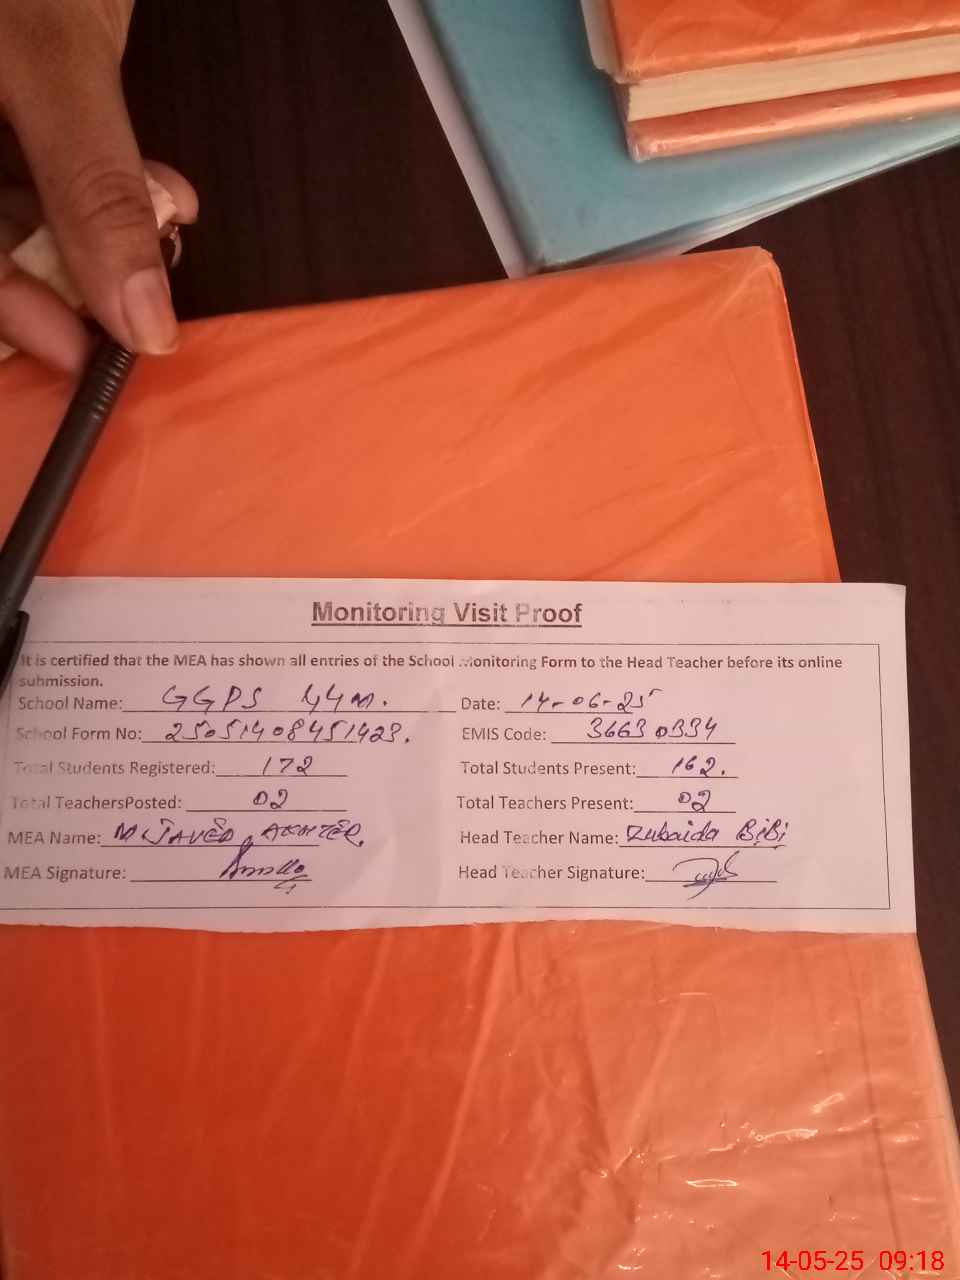 Monitoring Visit Proof
It is certified that the MEA has shown all entries of the School Monitoring Form to the Head Teacher before its online
submission.
School Name: GGPS 44M. Date: 14-06-25
School Form No: 25051408451423. EMIS Code: 36630334
Total Students Registered: 172 Total Students Present: 162.
Total TeachersPosted: 02 Total Teachers Present: 02
MEA Name: M JAVED AKHTER. Head Teacher Name: Zubaida BiBi
MEA Signature: Head Teacher Signature:
14-05-25 09:18